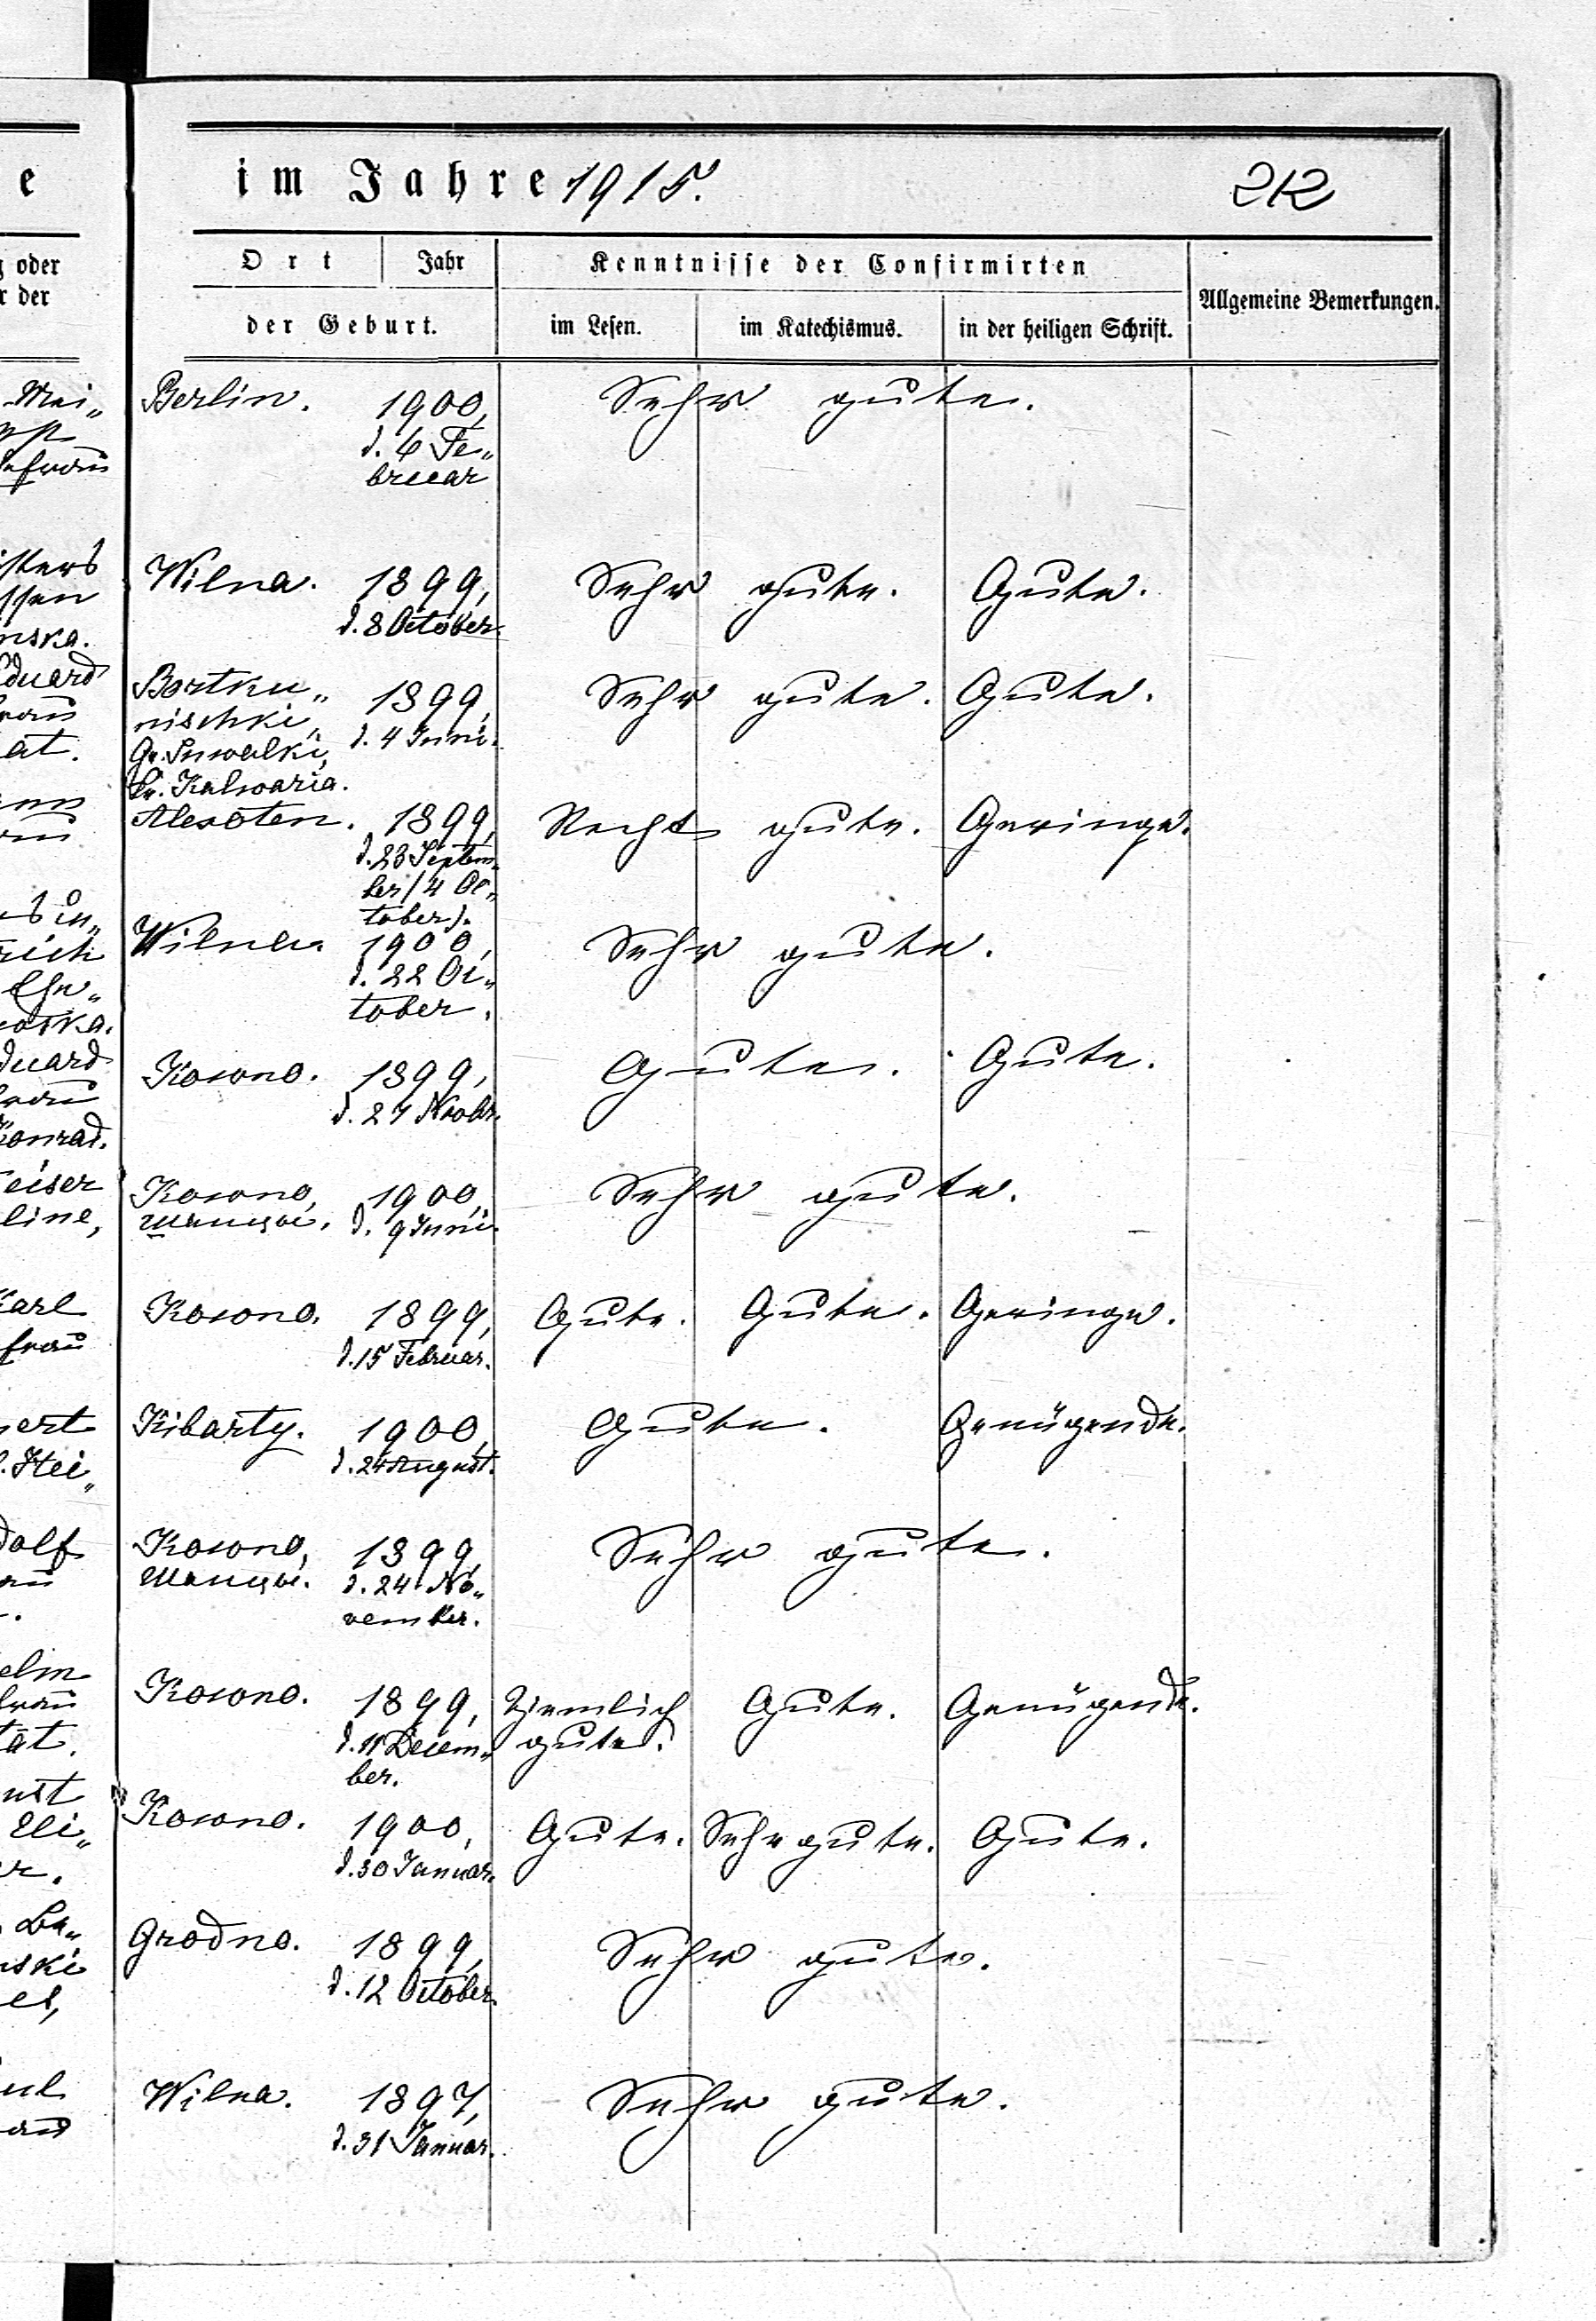 e im Jahre 1915. 212
oder
der
Ort Jahr
der Geburt.
Kenntnisse der Confirmirten
im Lesen. im Katechismus. in der heiligen Schrift.
Allgemeine Bemerkungen.
Berlin. 1900, Sehr gute.
d. 6 Fe„
bruar
Wilna. 1899, Sehr gute. Gute.
d. 8 October.
Bortku„ 1899, Sehr gute. Gute.
nischki, d. 4 Juni.
Gr. Suwalki,
Kr. Kalwaria.
Alexoten. 1899, Recht gute. Geringe.
d. 23 Septem„
ber (4 Oc„
tober).
Wilna. 1900, Sehr gute.
d. 22 Oc„
tober.
Kowno. 1899, Gute. Gute.
d. 27 Novbr.
Kowno, 1900, Sehr gute.
Шанцы. d. 9 Juni.
Kowno. 1899, Gute. Gute. Geringe.
d. 15 Februar.
Kibarty. 1900, Gute. Genügende.
d. 24 August.
Kowno, 1899, Sehr gute.
Шанцы. d. 24 No„
vember.
Kowno. 1899, Ziemlich Gute. Genügende.
d. 11 Decem„ gute.
ber.
Kowno. 1900, Gute. Sehr gute. Gute.
d. 30 Januar.
Grodno. 1899, Sehr gute.
d. 12 October
Wilna. 1897, Sehr gute.
d. 31 Januar.